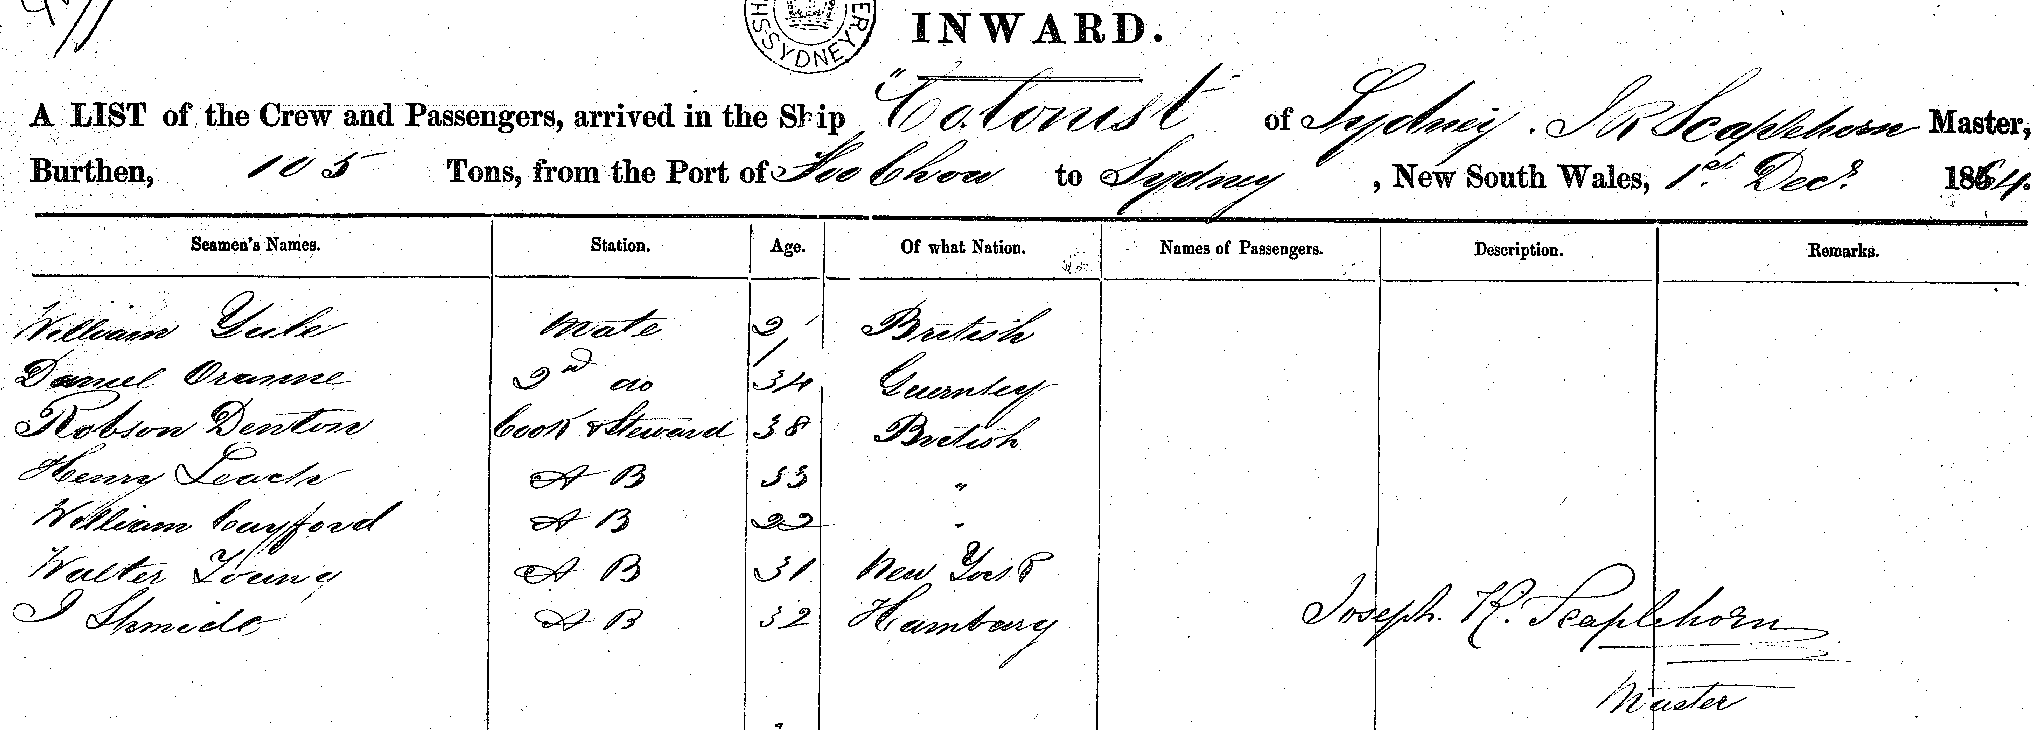 INWARD.
SYDNEY
A LIST of the Crew and Passengers, arrived in the Ship "Colonist of Sydney. J R Scaplehorn Master,
Burthen, 105 Tons, from the Port of Foo Chow to Sydney, New South Wales, 1st Decr. 1864.
Seamen's Names. Station. Age. Of what Nation. Names of Passengers. Description. Remarks.
William Yule Mate 21 British
Daniel 2nd do 34 Guernsey
Robson Denton Cook & Steward 38 British
Henry Leach A B 33 "
William Cayford A B 22 "
Walter Young A B 31 New York
J Shmidt A B 32 Hamburg
Joseph. R. Scaplehorn
Master